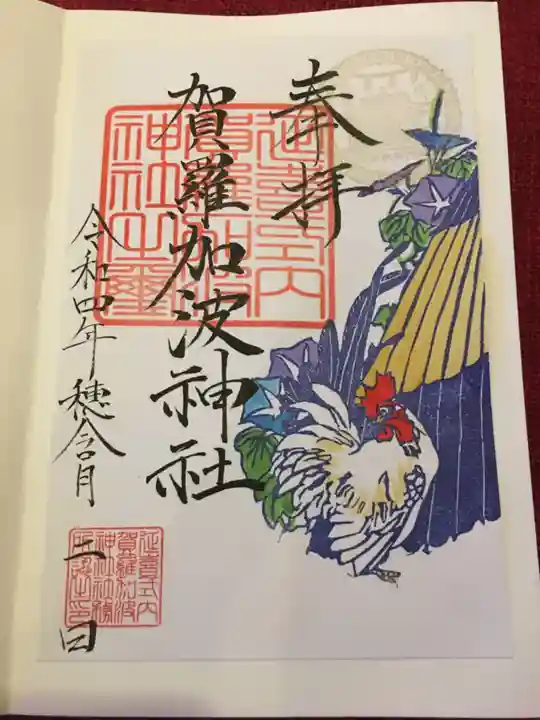 奉拝
賀羅加波神社
令和四年 穂含月
土日
延喜式内
賀羅加波
神社之璽
延喜式内
賀羅加波
神社社務